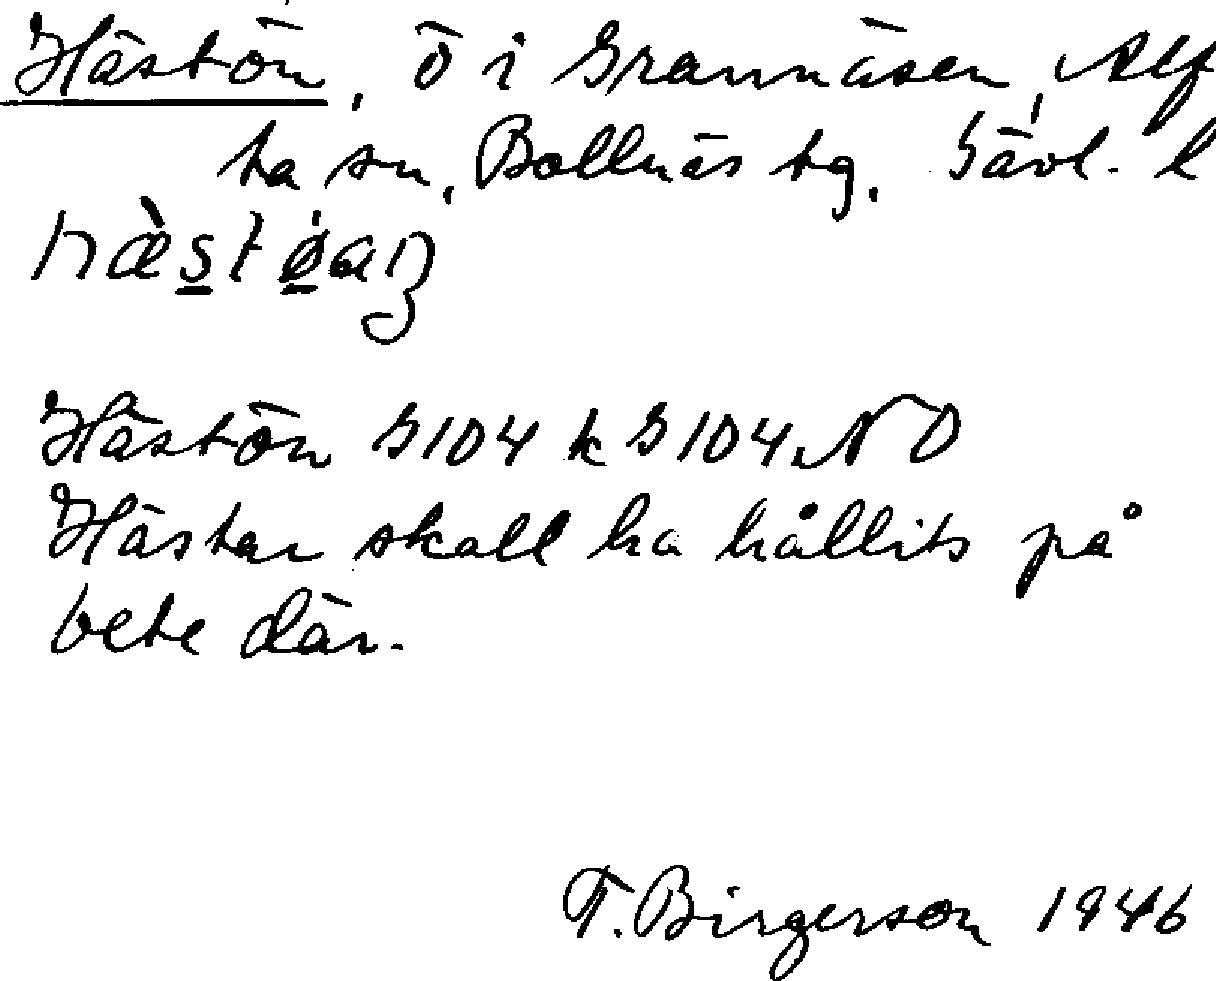 Hästön, ö i Grannäsen, Alf
ta sn, Bollnäs tg. Gävl. l
Hästön G104 k G104, NO
Hästar skall ha hållits på
bete där.
T. Birgerson 1946